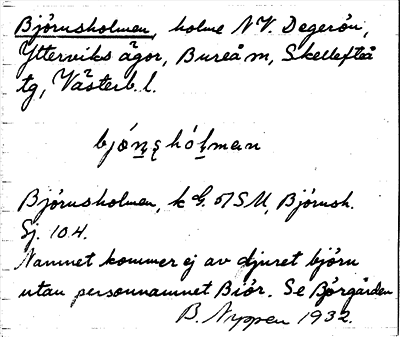 Björnsholmen, holme NV. Degerön,
Ytterviks ägor, Bureå m, Skellefteå
tg, Västerb. l.
bjó̱ṉs̨hó̱ḻman
Björnsholmen, k G. 57SU, Björnsh.
Sj. 104.
Namnet kommer ej av djuret björn
utan personnamnet Biór. Se Björgården
B. Nyppen 1932.